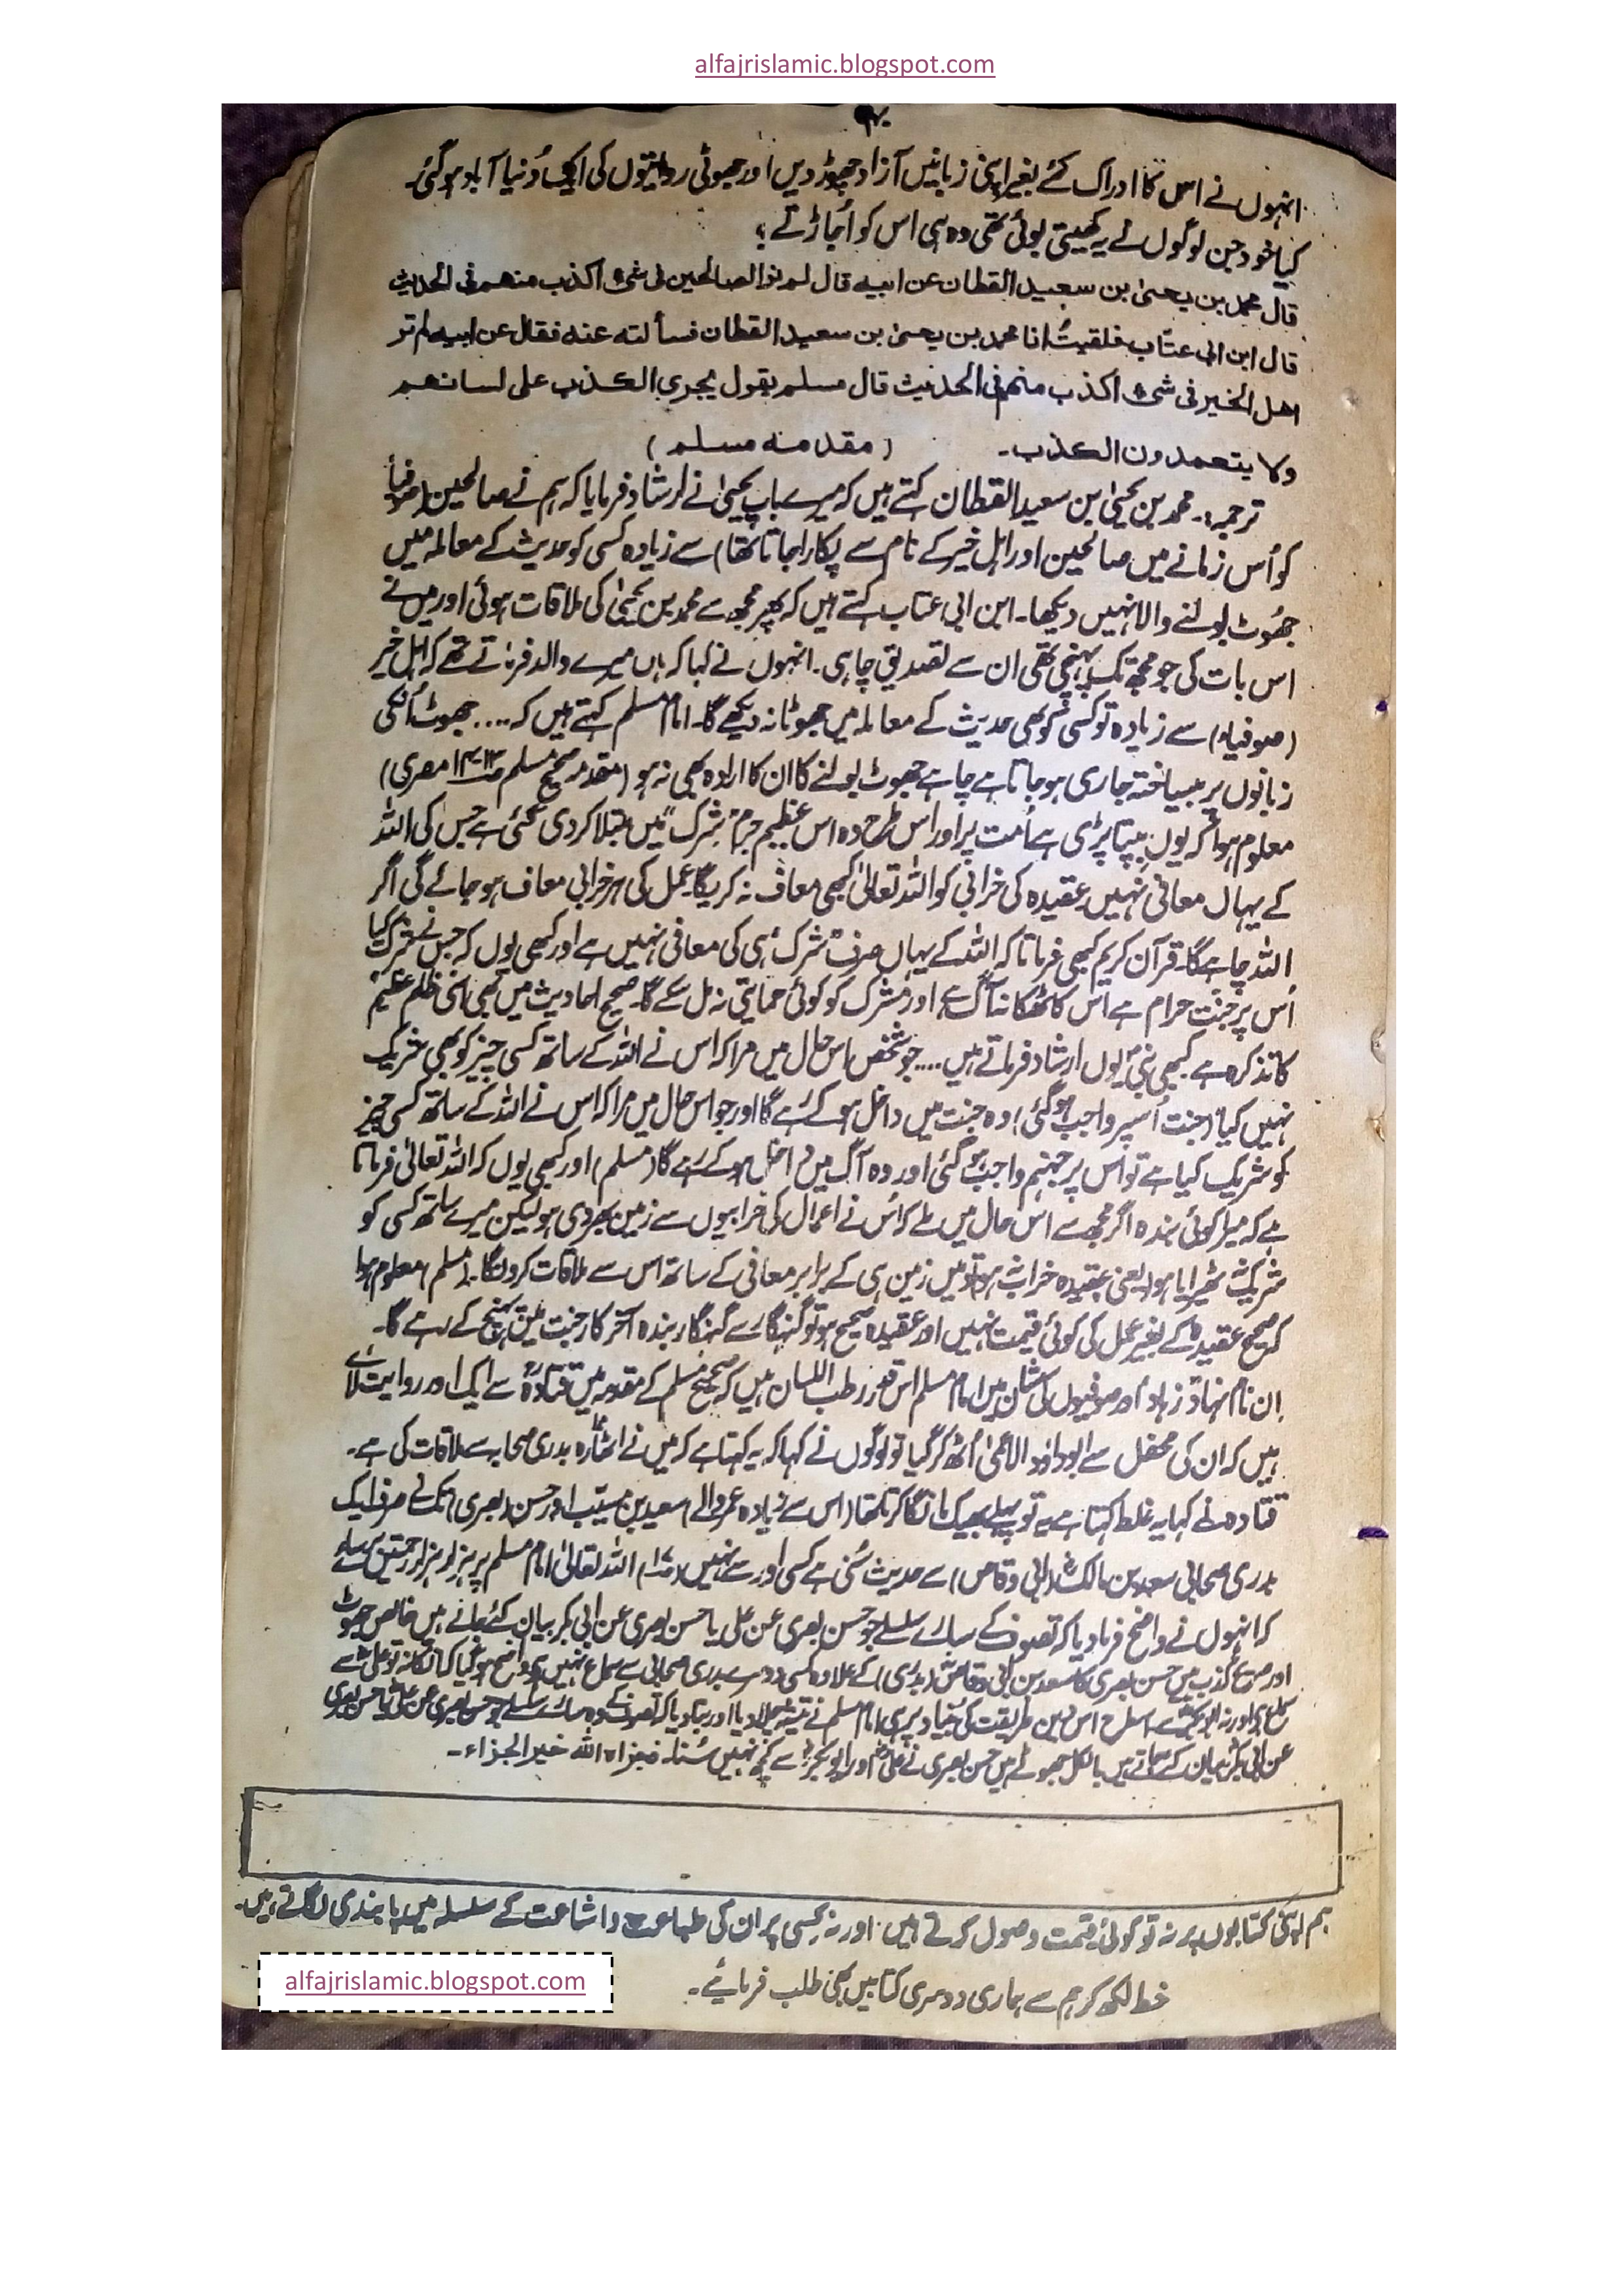 alfajrislamic.blogspot.com
انہوں نے اس کا ادراک کئے بغیر اپنی زبانیں آزاد چھوڑ دیں اور جھوٹی روایتوں کی ایک دُنیا آباد ہو گئی۔
کیا خود جن لوگوں نے یہ کھیتی بوئی تھی وہ ہی اس کو اُجاڑتے ؟
قال محمد بن یحییٰ بن سعید القطان عن ابیہ قال لم نر الصالحین فی شئ اکذب منھم فی الحدیث
قال ابن ابی عتّاب فلقیتُ انا محمد بن یحییٰ بن سعید القطان فسألتہ عنہ فقال عن ابیہ لم تر
اھل الخیر فی شئ اکذب منھم فی الحدیث قال مسلم یقول یجری الکذب علی لسانھم
ولا یتعمدون الکذب۔ (مقدمہ مسلم)
ترجمہ:۔ محمد بن یحییٰ بن سعید القطان کہتے ہیں کہ میرے باپ یحییٰ نے ارشاد فرمایا کہ ہم نے صالحین (صوفیأ
کو اُس زمانے میں صالحین اور اہل خیر کے نام سے پکارا جاتا تھا) سے زیادہ کسی کو حدیث کے معاملہ میں
جھُوٹ بولنے والا نہیں دیکھا۔ ابن ابی عتاب کہتے ہیں کہ پھر مجھ سے محمد بن یحییٰ کی ملاقات ہوئی اور میں نے
اس بات کی جو مجھ تک پہنچی تھی ان سے تصدیق چاہی۔ انہوں نے کہا کہ ہاں میرے والد فرماتے تھے کہ اہل خیر
(صوفیاء) سے زیادہ تو کسی کو بھی حدیث کے معاملہ میں جھوٹا نہ دیکھے گا۔ امام مسلم کہتے ہیں کہ .... جھوٹ اُنکی
زبانوں پر بیساختہ جاری ہو جاتا ہے چاہے جھوٹ بولنے کا ان کا ارادہ بھی نہ ہو (مقدمہ صحیح مسلم صـ۱۳-۱۴ مصری)
معلوم ہوا کہ یوں بپتا پڑی ہے اُمت پر اور اس طرح وہ اس عظیم جرم "شِرک" میں مبتلا کر دی گئی ہے جس کی اللہ
کے یہاں معافی نہیں عقیدہ کی خرابی کو اللہ تعالیٰ کبھی معاف نہ کریگا۔ عمل کی ہر خرابی معاف ہو جائے گی اگر
اللہ چاہے گا۔ قرآن کریم کبھی فرماتا کہ اللہ کے یہاں صرف شرک ہی کی معافی نہیں ہے اور کبھی یوں کہ جس نے شرک کیا
اُس پر جنت حرام ہے اس کا ٹھکانہ آگ ہے اور مشرک کو کوئی حمایتی نہ مل سکے گا۔ صحیح احادیث میں بھی اسی ظلم عظیم
کا تذکرہ ہے کبھی نبیؐ یوں ارشاد فرماتے ہیں .... جو شخص اس حال میں مرا کہ اس نے اللہ کے ساتھ کسی چیز کو بھی شریک
نہیں کیا (جنت اُسپر واجب ہو گئی) وہ جنت میں داخل ہو کے رہے گا اور جو اس حال میں مرا کہ اس نے اللہ کے ساتھ کسی چیز
کو شریک کیا ہے تو اس پر جہنم واجب ہو گئی اور وہ آگ میں داخل ہو کے رہے گا (مسلم) اور کبھی یوں کہ اللہ تعالیٰ فرماتا
ہے کہ میرا کوئی بندہ اگر مجھ سے اس حال میں ملے کہ اُس نے اعمال کی خرابیوں سے زمین بھر دی ہو لیکن میرے ساتھ کسی کو
شریک نہ ٹھیرایا ہو یعنی عقیدہ خراب نہ ہو تو میں زمین ہی کے برابر معافی کے ساتھ اس سے ملاقات کروں گا۔ (مسلم) معلوم ہوا
کہ صحیح عقیدہ کے بغیر عمل کی کوئی قیمت نہیں اور عقیدہ صحیح ہو تو گنہگار سے گنہگار بندہ آخر کار جنت میں پہنچ کے رہے گا۔
اِن نام نہاد زہاد اور صوفیوں کی شان میں امام مسلم اس قدر رطب اللسان ہیں کہ صحیح مسلم کے مقدمہ میں قتادہؒ سے ایک اور روایت لائے
ہیں کہ ان کی محفل سے ابوداؤد الاعمیٰ اُٹھ کر گیا تو لوگوں نے کہا کہ یہ کہتا ہے کہ میں نے اٹھارہ بدری صحابہ سے ملاقات کی ہے۔
قتادہ نے کہا یہ غلط کہتا ہے یہ تو پہلے بھیک مانگا کرتا تھا (اس سے زیادہ عمر والے) سعید بن مسیّب اور حسن (بصری) تک نے صرف ایک
بدری صحابی سعد بن مالکؓ (ابی وقاص) سے حدیث سُنی ہے کسی اور سے نہیں (صـ۱۷) اللہ تعالیٰ امام مسلم پر ہزار ہزار رحمتیں برسائے
کہ انہوں نے واضح فرما دیا کہ تصوف کے سارے سلسلے جو حسن بصری عن علی یا حسن بصری عن ابی بکر بیان کئے جاتے ہیں خالص جھوٹ
اور صریح کذب ہیں حسن بصری کا سعد بن ابی وقاصؓ (بدری) کے علاوہ کسی دوسرے بدری صحابی سے سماع نہیں واضح ہو گیا کہ انکا نہ تو علیؓ سے
سماع ہے اور نہ ابوبکرؓ سے اسطرح اس دین طریقت کی بنیاد پر ہی امام مسلم نے تیشہ چلا دیا اور بتا دیا کہ تصوف کے وہ سارے سلسلے جو حسن بصری عن علیؓ یا حسن بصری
عن ابی بکرؓ بیان کئے جاتے ہیں بالکل جھوٹے ہیں حسن بصری نے علیؓ اور ابوبکرؓ سے کچھ نہیں سُنا۔ فجزاہ اللہ خیر الجزاء۔
ہم اپنی کتابوں پر نہ تو کوئی قیمت وصول کرتے ہیں اور نہ کسی پر ان کی طباعت و اشاعت کے سلسلہ میں پابندی لگاتے ہیں۔
خط لکھ کر ہم سے ہماری دوسری کتابیں بھی طلب فرمائیے۔
alfajrislamic.blogspot.com